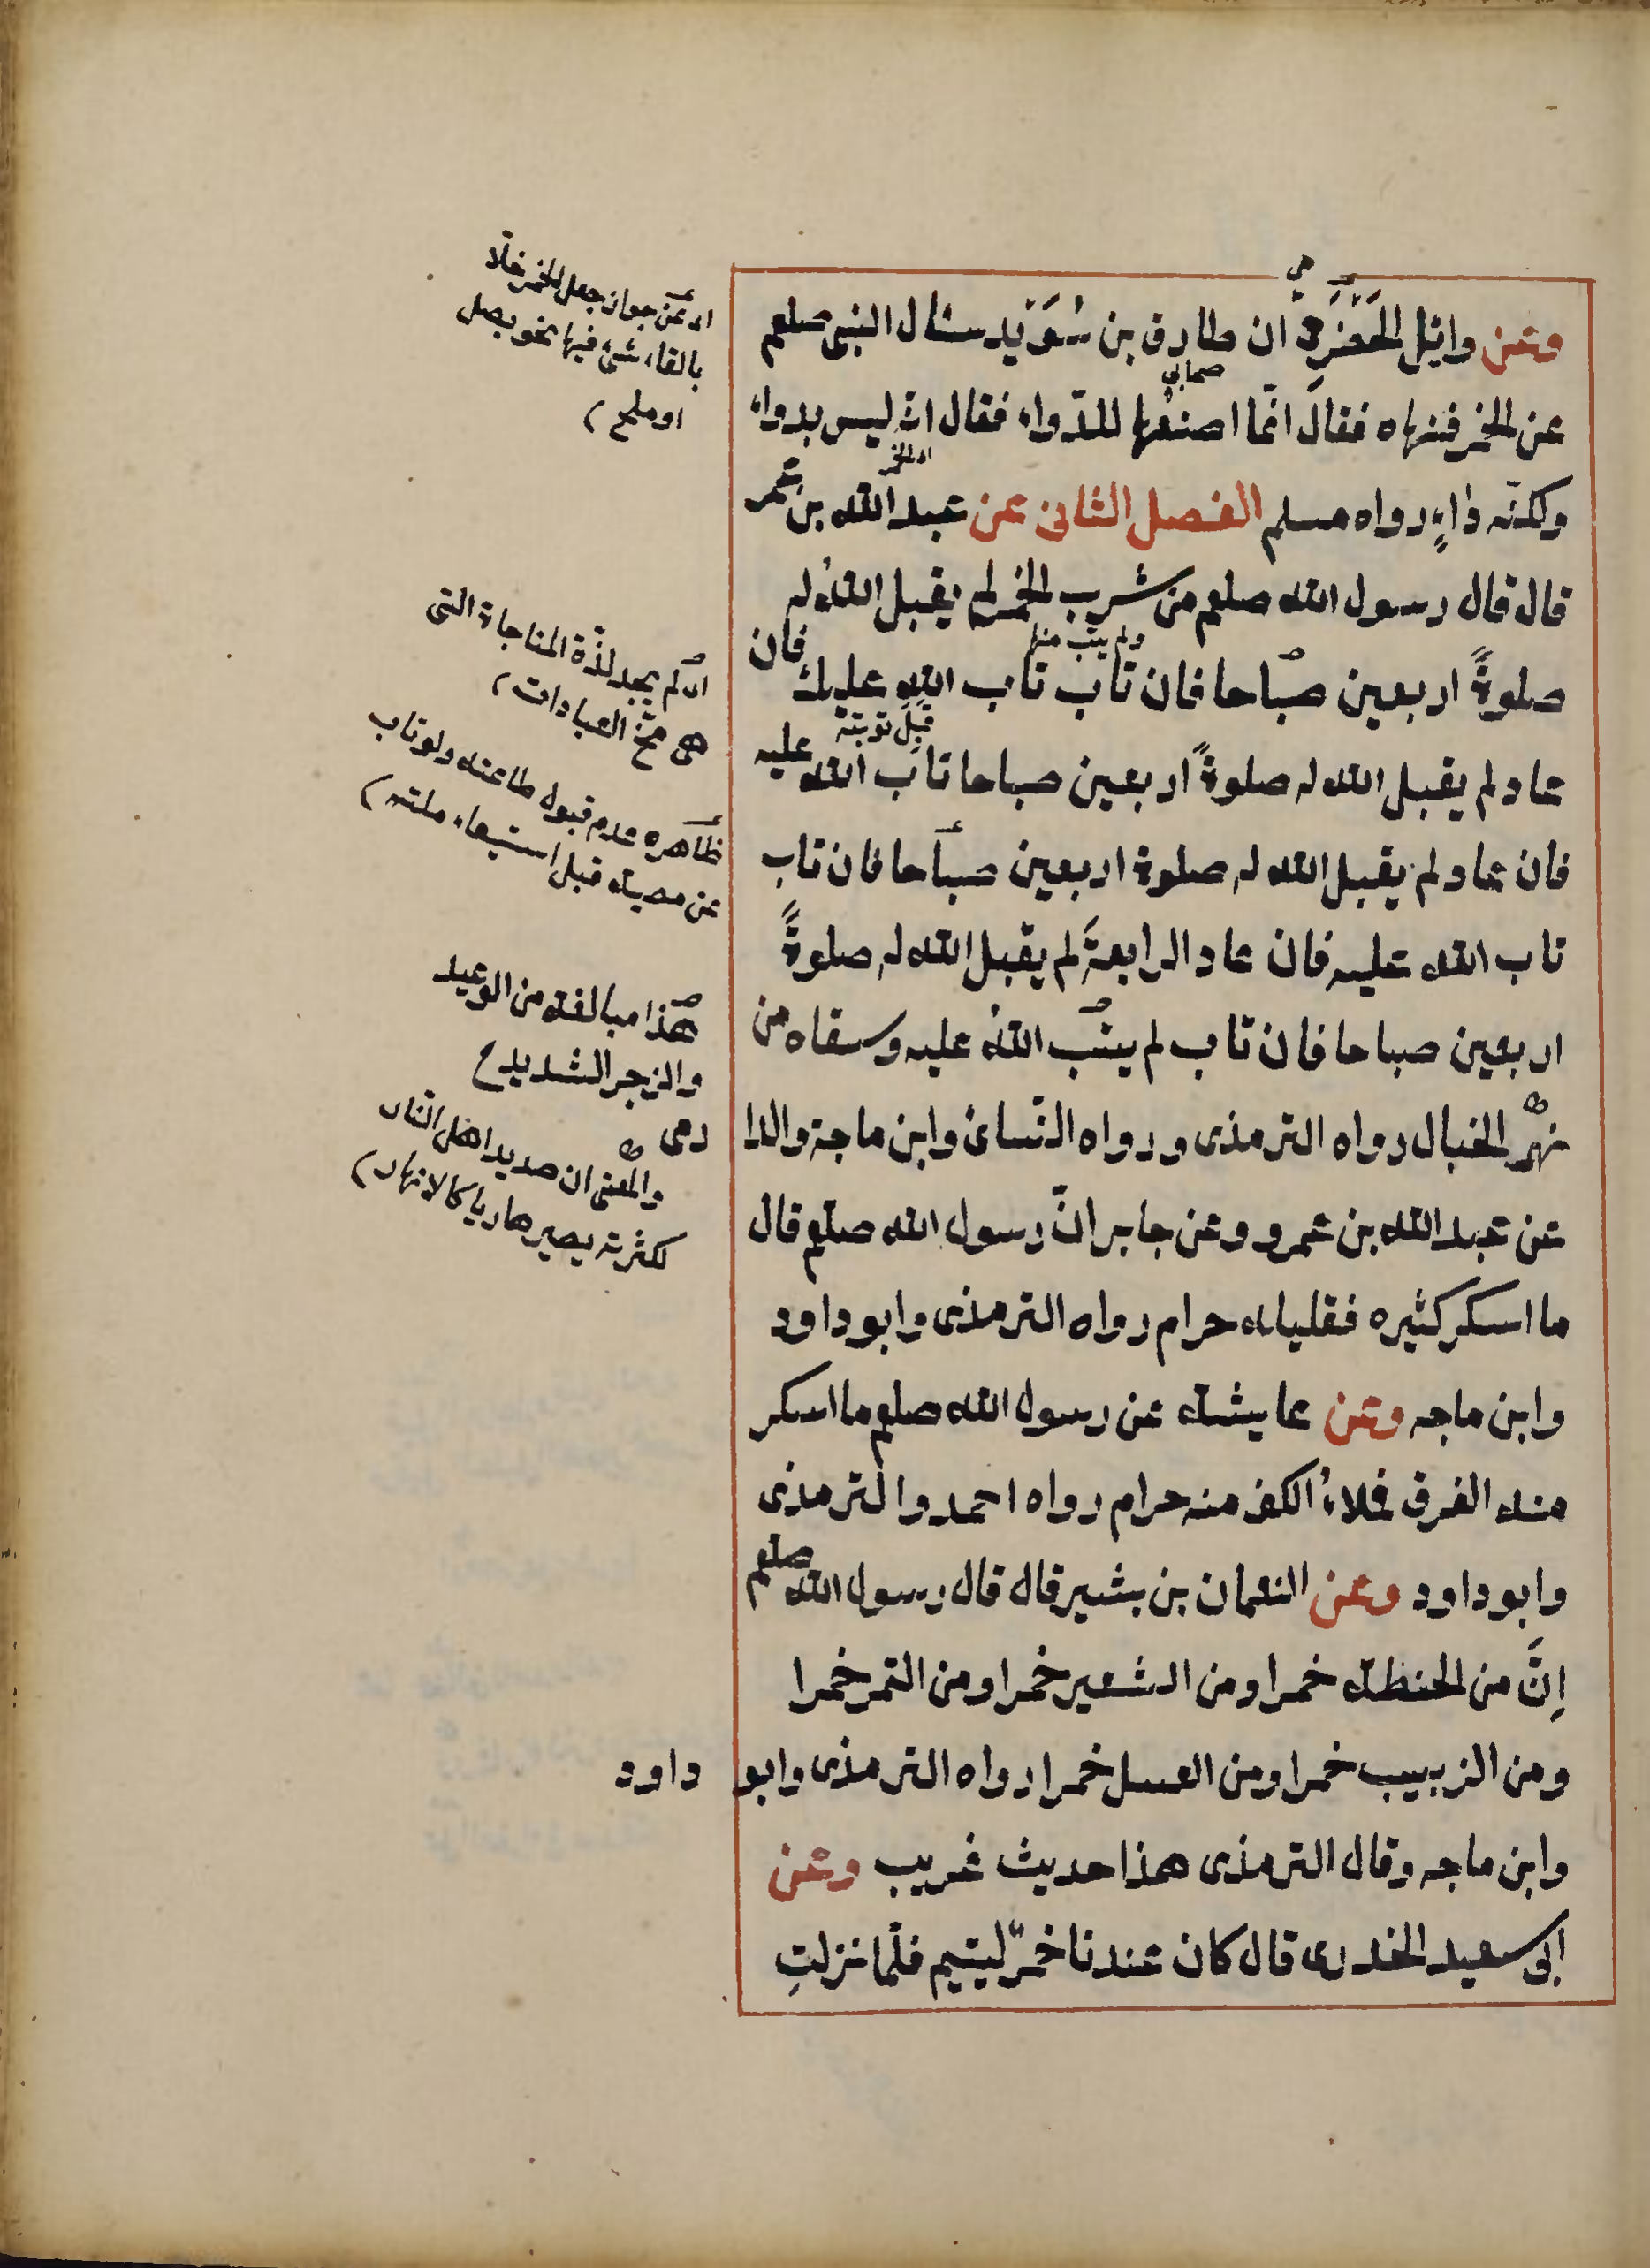 وعن وائل الحَضْرَمي ان طارق بن سُوَيْد سئال النبى صلعم
صحابى
عن الخمر فنهاه فقال انّما اصنعُها للدّواء فقال انّه ليس بدواء
اى الخمر
ولكنّه داءٍ رواه مسلم الفصل الثانى عن عبد الله بن عمر
قال قال رسول الله صلعم من شرب الخمر لم يقبل اللهُ له
صلوةً اربعين صباحا فان تاب تاب الله عليه فان
ولم يتب منها
قَبِلَ توبته
عاد لم يقبل الله له صلوةً اربعين صباحا تاب الله عليه
فان عاد لم يقبل الله له صلوة اربعين صباحا فان تاب
تاب الله عليه فان عاد الرابعةَ لم يقبل الله له صلوةً
اربعين صباحا فان تاب لم يتب اللهُ عليه وسقاه من
نهر الخبال رواه الترمذى ورواه النّسائ وابن ماجة والدا
رمى
عن عبد الله بن عمرو وعن جابر انّ رسول الله صلعم قال
ما اسكر كثيره فقليله حرام رواه الترمذى وابو داود
وابن ماجه وعن عايشة عن رسول الله صلعم ما اسكر
منه الفرق فملاءُ الكف منه حرام رواه احمد والترمذى
وابو داود وعن النعمان بن بشير قال قال رسول الله صلعم
اِنَّ من الحنطة خمرا ومن الشعير خمرا ومن التمر خمرا
ومن الزبيب خمرا ومن العسل خمرا رواه الترمذى وابو داود
وابن ماجه وقال الترمذى هذا حديث غريب وعن
ابى سعيد الخدرى قال كان عندنا خمرٌ ليتيم فلمّا نزلتِ
اى عن جواز جعل الخمر خلّا
بالقاء شئ فيها نحو بصل
او ملح
اى لم يجد لذّة المناجاة التى
هى مخّ العبادات
ظاهره عدم قبول طاعته ولو تاب
عن معصيته قبل استيفاء
هذا مبالغة من الوعيد
والزجر الشديد
والمعنى ان صديد اهل النّار
لكثرته يصير جاريا كالانهار